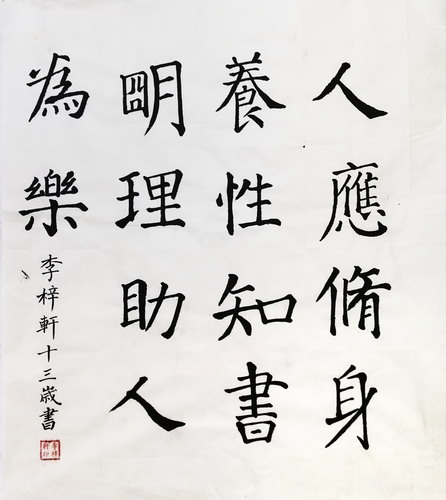 人應脩身
養性知書
明理助人
為樂
李梓軒十三歲書